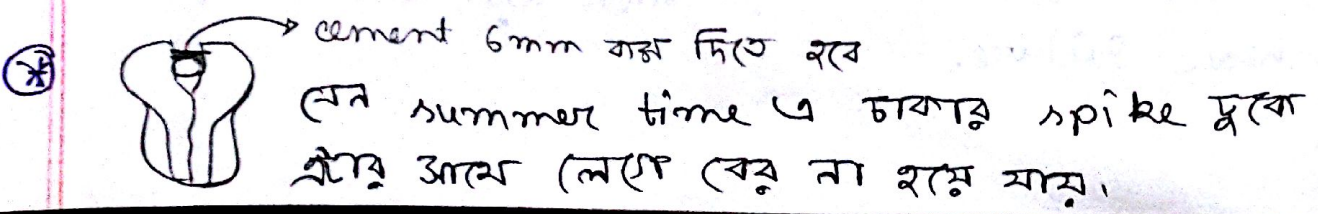 cement 6mm বাদ দিতে হবে
যেন summer time এ চাকার spike ঢুকে
এটার সাথে লেগে বের না হয়ে যায়।